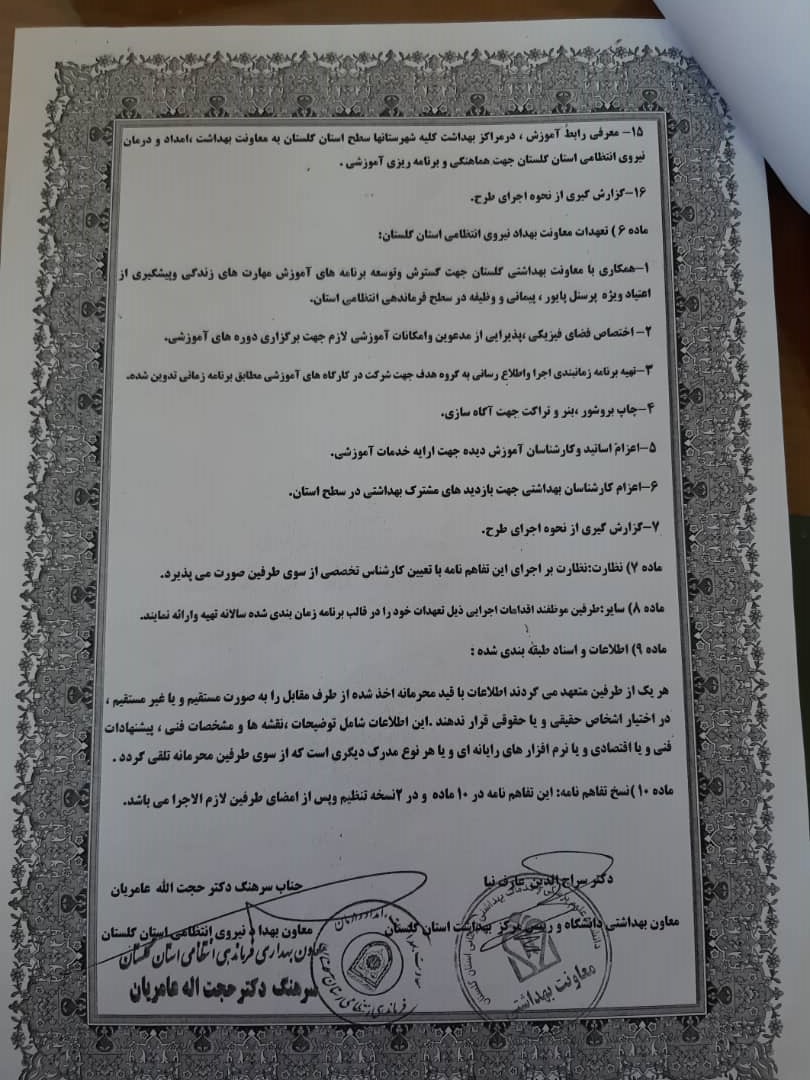 ۱۵- معرفی رابط آموزش ، درمراکز بهداشت کلیه شهرستانها سطح استان گلستان به معاونت بهداشت ،امداد و درمان
نیروی انتظامی استان گلستان جهت هماهنگی و برنامه ریزی آموزشی .
۱۶-گزارش گیری از نحوه اجرای طرح.
ماده ۶ ) تعهدات معاونت بهداد نیروی انتظامی استان گلستان:
۱-همکاری با معاونت بهداشتی گلستان جهت گسترش وتوسعه برنامه های آموزش مهارت های زندگی وپیشگیری از
اعتیاد ویژه پرسنل پایور ، پیمانی و وظیفه در سطح فرماندهی انتظامی استان.
۲- اختصاص فضای فیزیکی ،پذیرایی از مدعوین وامکانات آموزشی لازم جهت برگزاری دوره های آموزشی.
۳-تهیه برنامه زمانبندی اجرا واطلاع رسانی به گروه هدف جهت شرکت در کارگاه های آموزشی مطابق برنامه زمانی تدوین شده.
۴-چاپ بروشور ،بنر و تراکت جهت آگاه سازی.
۵-اعزام اساتید وکارشناسان آموزش دیده جهت ارایه خدمات آموزشی.
۶-اعزام کارشناسان بهداشتی جهت بازدید های مشترک بهداشتی در سطح استان.
۷-گزارش گیری از نحوه اجرای طرح.
ماده ۷) نظارت:نظارت بر اجرای این تفاهم نامه با تعیین کارشناس تخصصی از سوی طرفین صورت می پذیرد.
ماده ۸) سایر:طرفین موظفند اقدامات اجرایی ذیل تعهدات خود را در قالب برنامه زمان بندی شده سالانه تهیه وارائه نمایند.
ماده ۹) اطلاعات و اسناد طبقه بندی شده :
هر یک از طرفین متعهد می گردند اطلاعات با قید محرمانه اخذ شده از طرف مقابل را به صورت مستقیم و یا غیر مستقیم ،
در اختیار اشخاص حقیقی و یا حقوقی قرار ندهند .این اطلاعات شامل توضیحات ،نقشه ها و مشخصات فنی ، پیشنهادات
فنی و یا اقتصادی و یا نرم افزار های رایانه ای و یا هر نوع مدرک دیگری است که از سوی طرفین محرمانه تلقی گردد .
ماده ۱۰ )نسخ تفاهم نامه: این تفاهم نامه در ۱۰ ماده و در ۲نسخه تنظیم وپس از امضای طرفین لازم الاجرا می باشد.
دکتر سراج الدین عارف نیا
جناب سرهنگ دکتر حجت الله عامریان
معاون بهداشتی دانشگاه و رییس مرکز بهداشت استان گلستان
معاون بهداد نیروی انتظامی استان گلستان
معاون بهداری فرماندهی انتظامی استان گلستان
سرهنگ دکتر حجت اله عامریان
معاونت بهداشتی
فرماندهی انتظامی استان گلستان